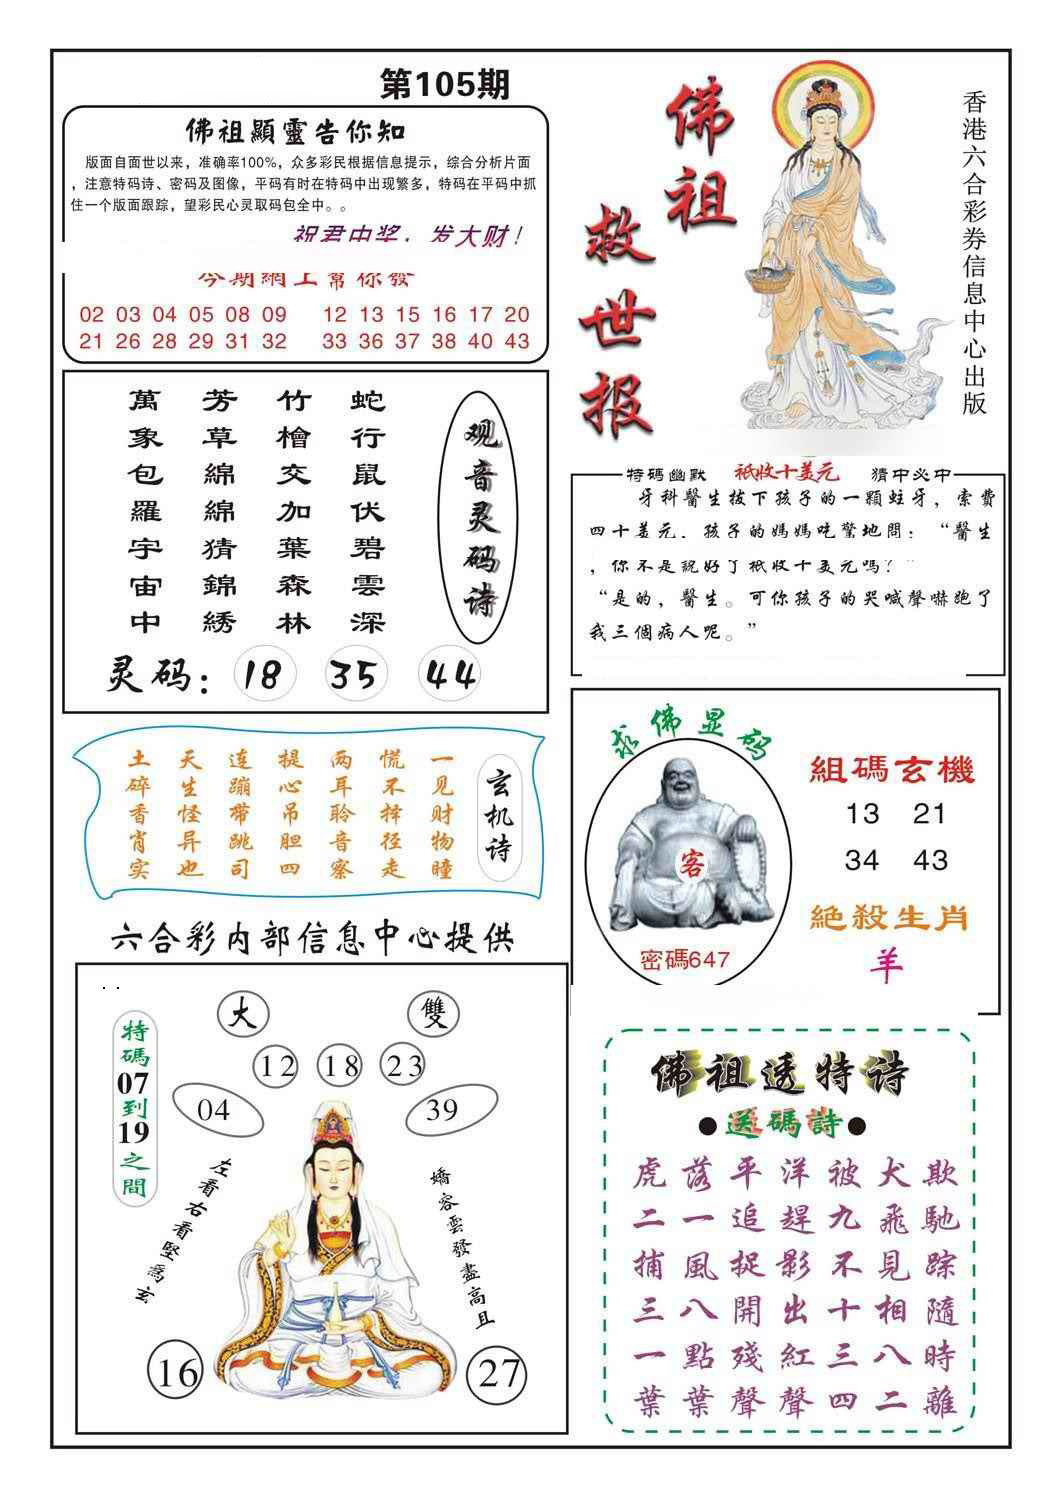 第105期
佛祖顯靈告你知
版面自面世以来，准确率100%，众多彩民根据信息提示，综合分析片面
，注意特码诗、密码及图像，平码有时在特码中出现繁多，特码在平码中抓
住一个版面跟踪，望彩民心灵取码包全中。。
祝君中奖，发大财！
今期網上幫你發
02 03 04 05 08 09 12 13 15 16 17 20
21 26 28 29 31 32 33 36 37 38 40 43
佛祖
救世报
香港六合彩券信息中心出版
蛇行鼠伏碧雲深
竹檜交加葉森林
芳草綿綿猜錦綉
萬象包羅宇宙中
观音灵码诗
灵码：18 35 44
特碼幽默 祇收十美元 猜中必中
牙科醫生拔下孩子的一顆蛀牙，索費
四十美元．孩子的媽媽吃驚地問：“醫生
，你不是說好了祇收十美元嗎？”
“是的，醫生。可你孩子的哭喊聲嚇跑了
我三個病人呢。”
玄机诗
一见财物瞳
慌不择径走
两耳聆音察
提心吊胆四
连蹦带跳司
天生怪异也
土碎香肖实
求佛显码
客
密碼647
組碼玄機
13 21
34 43
絕殺生肖
羊
六合彩内部信息中心提供
特碼07到19之間
大 雙
12 18 23
04 39
左看右看堅為玄
嬌容雲發盡高且
16 27
佛祖透特诗
●送碼詩●
虎落平洋被犬欺
二一追趕九飛馳
捕風捉影不見踪
三八開出十相隨
一點殘紅三八時
葉葉聲聲四二離